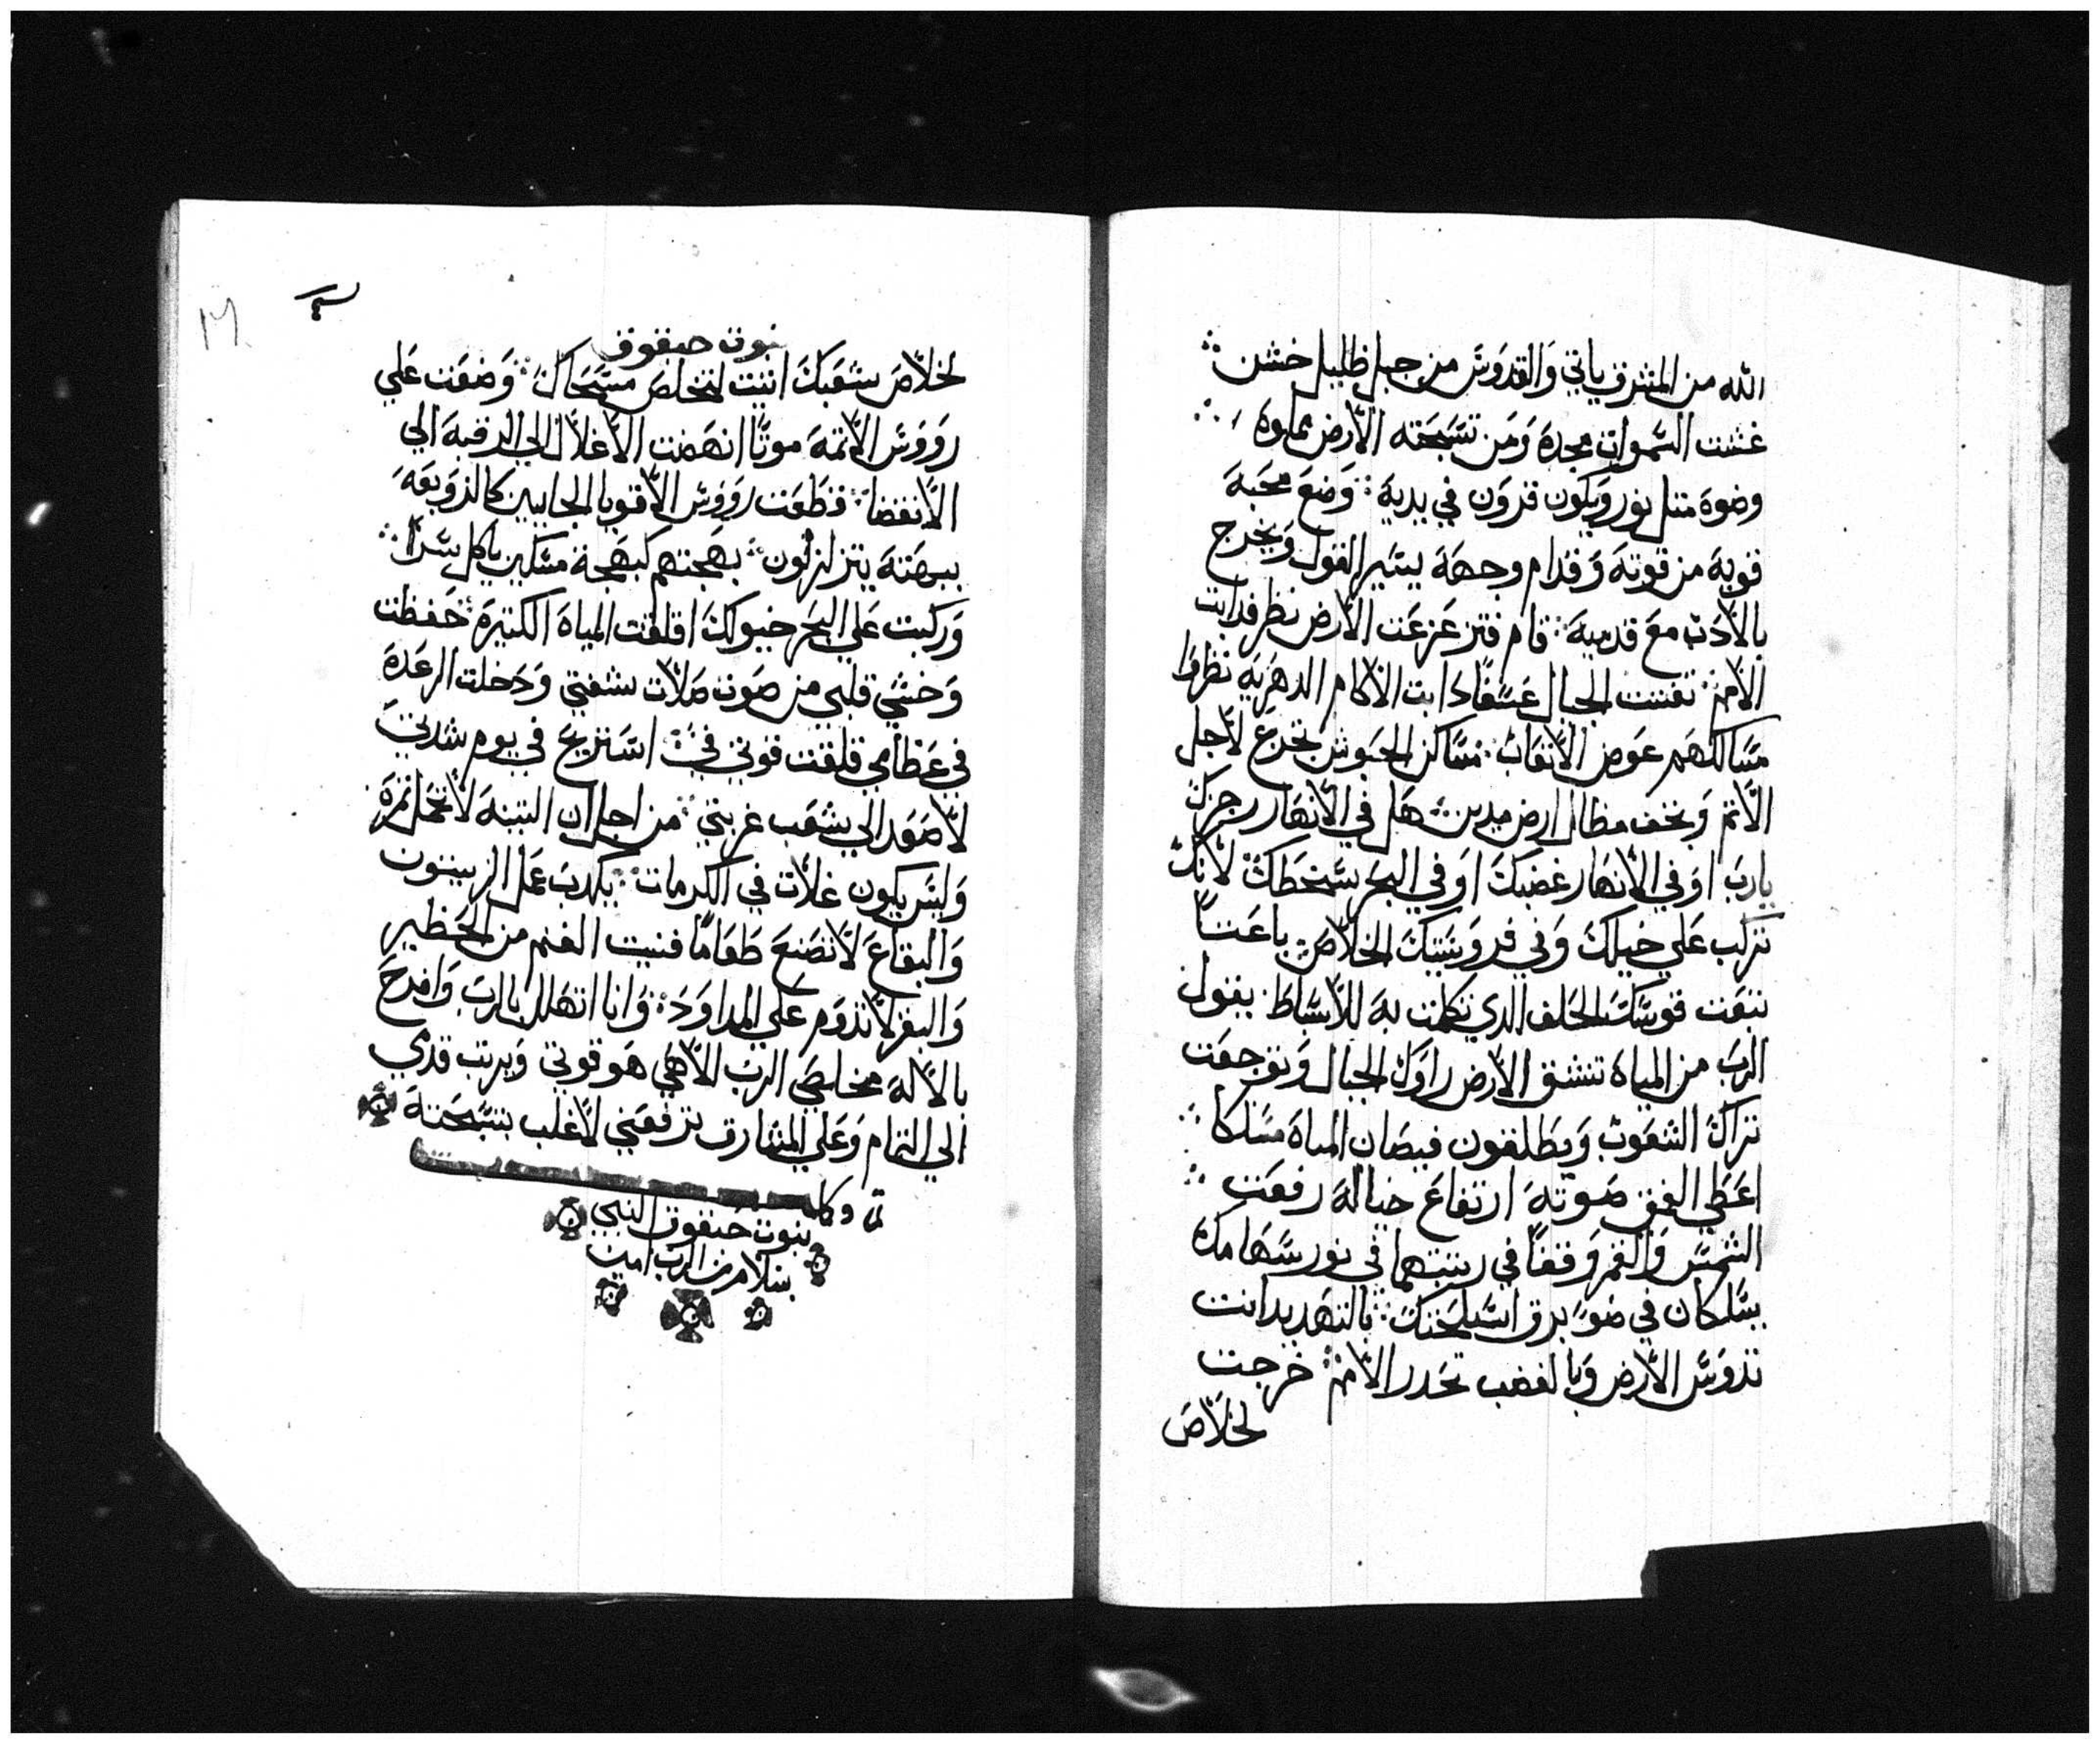 الله من المشرق ياتي وَالقدوَسَ من جبل ظليل خشن
غشت السَّموات مجدة وَمن تسَبَحته الأرض مملوة
وضوة متل نور ويكون قروَن في يدية وَضعَ محَبة
قوية من قوتة وَقدام وجهَة يسَير القول وَيخرج
بالأدَب معَ قدمية قام فتزعَزعَت الأرض نظر فدابت
الأمم تفتت الجبال عسَفًا دابت الأكام الدهَرية نظروا
مسَالكهَم عوَض الأتعَاب مسَاكن الحَبوش تخزع لأجل
الأتم وَيخف مظال ارض مدين هل في الأنهَار رجزك
يارب اوَ في الأنهَار غضبك اوَ في البحَر سَخطك لأنك
تركب عَلي خيلك وَفي فروَسَيتك الخلاص باعَتًا
تبعَت قوسَك الحَلف الدي تكلمت بة للأسَباط يقول
الرب من المياة تنشق الأرض راوَك الجبال وَتوجعَت
تراك الشعَوب وَيطلقون فيضان المياة مسَلكا
اعَطي الغمق صَوتة ارتفاعَ خيالة رفعَت
الشمسَ وَالقمر وَقفا في رتبتهما في نور سَهامك
يسَلكان في ضوَ برق اسَلحَتك بالتهَديد انت
تدوسَ الأرض وَبالغضب تحَدر الأمم خرجت
لخلاَص
نبوت حبقوق
لخلاَص شعَبك اتيت لتخلص مسَحَاك وَضعَت عَلي
روَوسَ الأتمة موتًا انهَضت الأغلال الي الرقبة الي
الأنقضا قطعَت روَوسَ الأقويا الجبابين كالزوَبعَة
ببهَتة يتزلزلون بهَجتهم كبهَجة مسَكين ياكل سَرًا
وَركبت عَلي البحَر خيولك اقلقت المياة الكتيرة حَفظت
وَخشي قلبي من صَوت صَلاَت شفتي وَدَخلت الرعَدة
في عَظامي قلقت قوتي في اسَتريح في يوم شدتي
لأصَعَد الي شعَب غربتي من اجل ان التينة لا تحَمل تمرة
وَليسَ يكون غلاَت في الكرمات يكدب عَمل الزيتون
وَالبقاعَ لا تصَنعَ طعَامًا فنيت الغنم من الحَظير
وَالبقر لا تدوَم عَلي المداوَد وَانا اتهَلل بالرب وَافرحَ
بالألة مخلصَي الرب الأهي هَو قوتي وَيرتب قدمي
الي التمام وَعَلي المشارق يرفعَني لأغلب بتسَبحَتة
تم وكل
نبوت حَبقوق النبي
بسَلام من الرب امين